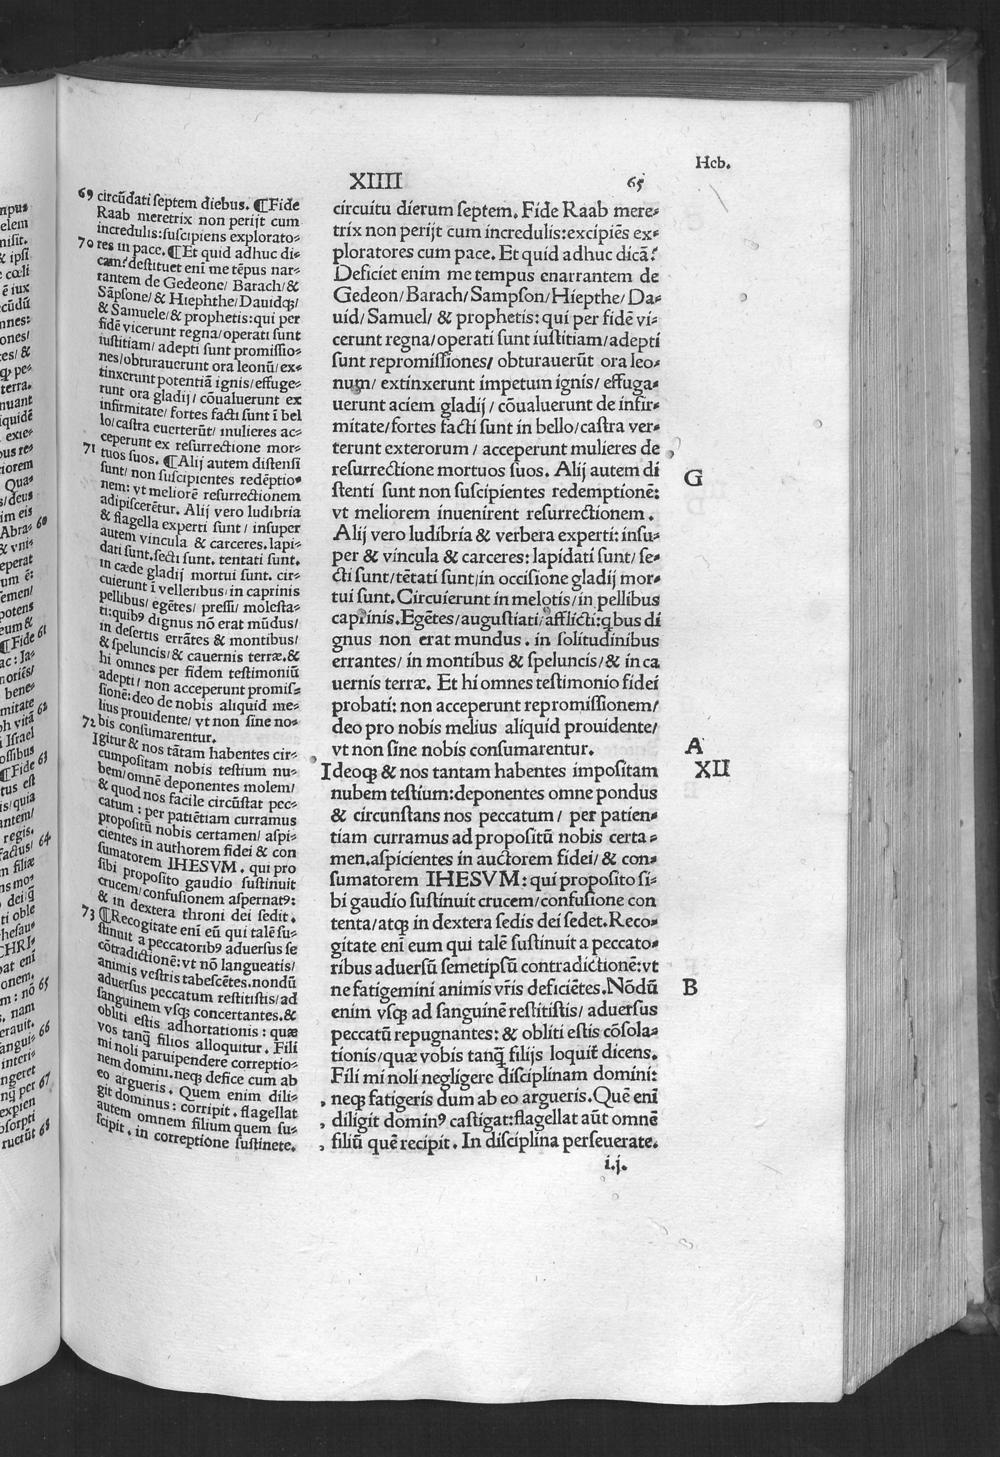 Heb.
XIIII
65
69 circūdati ſeptem diebus. ¶Fide
Raab meretrix non perijt cum
incredulis:ſuſcipiens explorato⸗
70 res in pace. ¶Et quid adhuc di⸗
cam? deſtituet enī me tēpus nar⸗
rantem de Gedeone/ Barach/ &
Sāpſone/ & Hiephthe/ Dauidqꝫ/
& Samuele/ & prophetis: qui per
fidē vicerunt regna/ operati ſunt
iuſtitiam/ adepti ſunt promiſſio⸗
nes/obturauerunt ora leonū/ ex⸗
tinxerunt potentiā ignis/ effuge⸗
runt ora gladij/ cōualuerunt ex
infirmitate/ fortes facti ſunt ī bel
lo/ caſtra euerterūt/ mulieres ac⸗
ceperunt ex reſurrectione mor⸗
71 tuos ſuos. ¶Alij autem diſtenſi
ſunt/ non ſuſcipientes redēptio⸗
nem: vt meliorē reſurrectionem
adipiſcerētur. Alij vero ludibria
& flagella experti ſunt/ inſuper
autem vincula & carceres. lapi⸗
dati ſunt. ſecti ſunt. tentati ſunt.
in cæde gladij mortui ſunt. cir⸗
cuierunt ī velleribus/ in caprinis
pellibus/ egētes/ preſſi/ moleſta⸗
ti: quibꝰ dignus nō erat mūdus/
in deſertis errātes & montibus/
& ſpeluncis/ & cauernis terræ. &
hi omnes per fidem teſtimoniū
adepti/ non acceperunt promiſ⸗
ſionē: deo de nobis aliquid me⸗
lius prouidente/ vt non ſine no⸗
72 bis conſumarentur.
Igitur & nos tātam habentes cir⸗
cumpoſitam nobis teſtium nu⸗
bem/ omnē deponentes molem/
& quod nos facile circūſtat pec⸗
catum: per patiētiam curramus
propoſitū nobis certamen/ aſpi⸗
cientes in authorem fidei & con
ſumatorem IHESVM. qui pro
ſibi propoſito gaudio ſuſtinuit
crucem/ confuſionem aſpernatꝰ:
& in dextera throni dei ſedit.
73 ¶Recogitate enī eū qui talē ſu⸗
ſtinuit a peccatoribꝰ aduerſus ſe
cōtradictionē: vt nō langueatis/
animis veſtris tabeſcētes. nondū
aduerſus peccatum reſtitiſtis/ ad
ſanguinem vſqꝫ concertantes. &
obliti eſtis adhortationis: quæ
vos tanq̄ filios alloquitur. Fili
mi noli paruipendere correptio⸗
nem domini. neqꝫ defice cum ab
eo argueris. Quem enim dili⸗
git dominus: corripit. flagellat
autem omnem filium quem ſu⸗
ſcipit. in correptione ſuſtinete.
circuitu dierum ſeptem. Fide Raab mere⸗
trix non perijt cum incredulis:excipiēs ex⸗
ploratores cum pace. Et quid adhuc dicā?
Deficiet enim me tempus enarrantem de
Gedeon/ Barach/ Sampſon/ Hiepthe/ Da⸗
uid/ Samuel/ & prophetis: qui per fidē vi⸗
cerunt regna/ operati ſunt iuſtitiam/ adepti
ſunt repromiſſiones/ obturauerūt ora leo⸗
num/ extinxerunt impetum ignis/ effuga⸗
uerunt aciem gladij/ cōualuerunt de infir⸗
mitate/ fortes facti ſunt in bello/ caſtra ver⸗
terunt exterorum/ acceperunt mulieres de
reſurrectione mortuos ſuos. Alij autem di
ſtenti ſunt non ſuſcipientes redemptionē:
vt meliorem inuenirent reſurrectionem.
Alij vero ludibria & verbera experti: inſu⸗
per & vincula & carceres: lapidati ſunt/ ſe⸗
cti ſunt/ tētati ſunt/ in occiſione gladij mor⸗
tui ſunt. Circuierunt in melotis/ in pellibus
caprinis. Egētes/ auguſtiati/ afflicti: qbus di
gnus non erat mundus. in ſolitudinibus
errantes/ in montibus & ſpeluncis/ & in ca
uernis terræ. Et hi omnes teſtimonio fidei
probati: non acceperunt repromiſſionem/
deo pro nobis melius aliquid prouidente/
vt non ſine nobis conſumarentur.
Ideoqꝫ & nos tantam habentes impoſitam
nubem teſtium: deponentes omne pondus
& circunſtans nos peccatum/ per patien⸗
tiam curramus ad propoſitū nobis certa⸗
men. aſpicientes in auctorem fidei/ & con⸗
ſumatorem IHESVM: qui propoſito ſi⸗
bi gaudio ſuſtinuit crucem/ confuſione con
tenta/ atqꝫ in dextera ſedis dei ſedet. Reco⸗
gitate enī eum qui talē ſuſtinuit a peccato⸗
ribus aduerſū ſemetipſū contradictionē: vt
ne fatigemini animis vr̄is deficiētes. Nōdū
enim vſqꝫ ad ſanguinē reſtitiſtis/ aduerſus
peccatū repugnantes: & obliti eſtis cōſola⸗
tionis/ quæ vobis tanq̄ filijs loquit̄ dicens.
Fili mi noli negligere diſciplinam domini:
, neqꝫ fatigeris dum ab eo argueris. Quē enī
, diligit dominꝰ caſtigat: flagellat aūt omnē
, filiū quē recipit. In diſciplina perſeuerate.
G
A
XII
B
i.j.